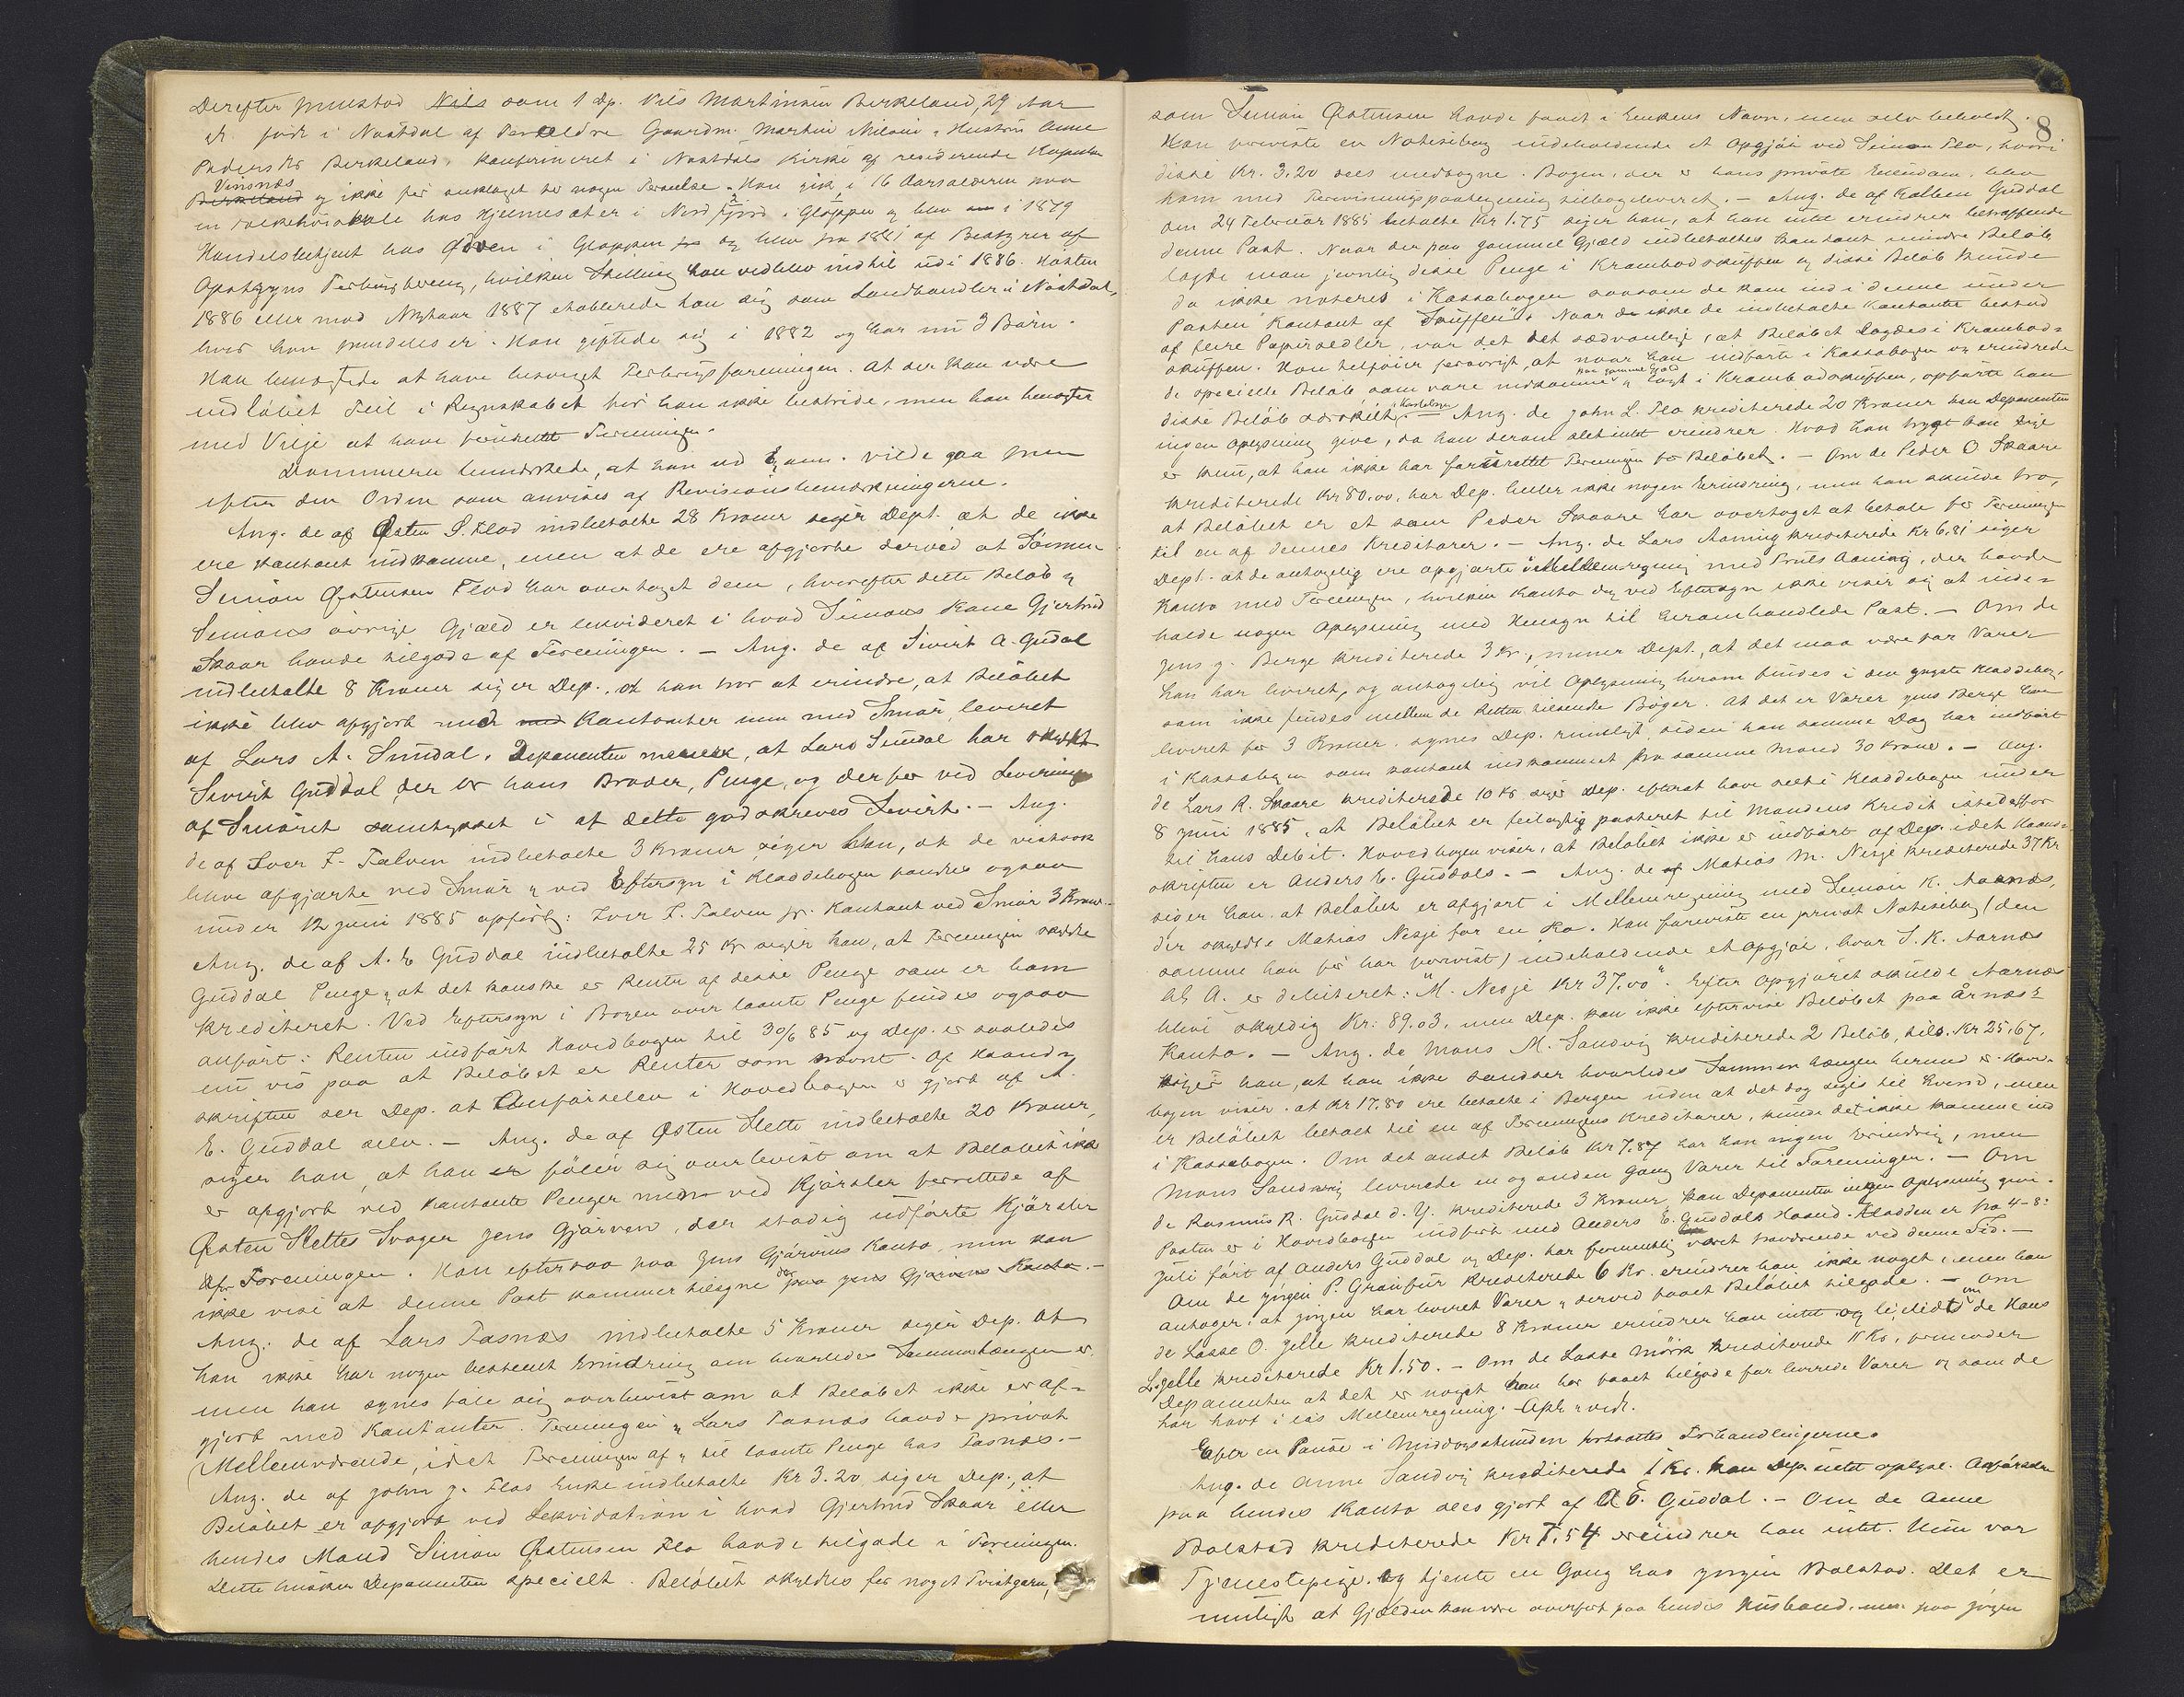 Derefter fremstod Nils som 1 Dp. Nils Martinsen Birkeland, 29 Aar
gl. født i Naustdal af Forældre Gaardm. Martin Nilsen & Hustru Anne
Pedersdtr Birkeland, konfirmeret i Naustdals Kirke af residerende Kapellan
Vinsnes
Birkeland og ikke før anklaget for nogen Forseelse. Han gik i 16 Aarsalderen paa
en Folkehöiskole hos Hjelmesæter i Nordfjord i Gloppen og blev i 1879
Handelsbetjent hos Öven i Gloppen og blev fra 1881 af Bestyrer af
Forbrugsforening, hvilken Stilling han vedblev indtil ud i 1886. Høsten
1886 eller mod Nytaar 1887 etablerede han sig som Landhandler i Naustdal,
hvor han fremdeles er. Han giftede sig i 1882 og har nu 3 Børn.
Han benegtede at have besveget Forbrugsforeningen. At der kan være
indløbet Feil i Regnskabet tør han ikke bestride, men han benegter
med Vilje at have forurettet Foreningen.
Dommeren bemærkede, at han ved Exam. vilde gaa frem
efter den Orden som anvises af Revisionsbemærkningerne.
Ang. de af Østen S. Flod indbetalte 28 Kroner siger Dept. at de ikke
ere kontant indkomne, men at de ere afgjorte derved at Sönnen
Simon Østensen Flod har overtaget dem, hvorefter dette Beløb &
Simons övrige Gjæld er likvideret i hvad Simons Kone Gjertrud
Skaar havde tilgode af Foreningen. – Ang. de af Sivert A. Gudal
indbetalte 8 Kroner siger Dep., at han tror at erindre, at Beløbet
ikke blev afgjort med Kontanter men med Smör, leveret
af Lars A. Sundal. Deponenten mener, at Lars Sundal har skyldt
Sivert Guddal, der er hans Broder, Penge, og derfor ved Levering
af Smöret samtykket i at dette godskreves Sivert. – Ang.
de af Iver J. Talven indbetalte 3 Kroner siger han, at de vistnok
bleve afgjorte ved Smör & ved Eftersyn i Kladdebogen fandtes ogsaa
under 12 Juni 1885 opført: Iver J. Talven pr. Kontant ved Smör 3 Kroner.
Ang. de af A. E. Guddal indbetalte 25 Kr siger han, at Foreningen skyldte
Guddal Penge, & at det kanske er Rente af disse Penge som er ham
krediteret. Ved Eftersyn i Bogen over laante Penge findes ogsaa
anført: Renten indført Hovedbogen til 30/6 85 og Dep. er saaledes
nu vis paa at Beløbet er Renter som nævnt. Af Haand-
skriften ser Dep. at Anførselen i Hovedbogen er gjort af A.
E. Guddal selv. – Ang. de af Østen Slette indbetalte 20 Kroner,
siger han, at han er föler sig overbevist om at Beløbet ikke
er afgjort ved kontante Penger men ved Kjörsler forrettede af
Østen Slettes Svoger Jens Gjörven, der stadig udførte Kjörsler
for Foreningen. Han eftersaa paa Jens Gjörvens Konto, men kan
ikke vise at denne Post kommer tilsyne der paa Jens Gjörvens Konto. –
Ang. de af Lars Tasnæs indbetalte 5 Kroner siger Dep. at
han ikke har nogen bestemt Erindring om hvorledes Sammenhængen er,
men han synes føle sig overbevist om at Beløbet ikke er af-
gjort med Kontanter. Foreningen & Lars Tasnæs havde privat
Mellemværende, idet Foreningen af & til laante Penge hos Tasnæs. –
Ang. de af John J. Flos Enke indbetalte Kr 3.20 siger Dep., at
Beløbet er afgjort ved Likvidation i hvad Gjertrud Skaar eller
hendes Mand Simon Østensen Flo havde tilgode i Foreningen.
Dette husker Deponenten specielt. Beløbet skyldtes for noget Tvistgarn,
8
som Simon Østensen havde faaet i Enkens Navn, men selv beholdt.
Han foreviste en Notitsbog indeholdende et Opgjør ved Simon Flo, hvori
disse Kr. 3,20 sees medtagne. Bogen, der er hans private Eiendom, blev
ham med Forevisningspaategning tilbageleveret. – Ang. de af Kolben Guddal
den 24 Februar 1885 betalte Kr 1.75 siger han, at han intet erindrer betræffende
denne Post. Naar der paa gammel Gjæld indbetaltes kontant mindre Beløb,
lagde man jevnlig disse Penge i Krambodskuffen og disse Beløb kunde
da ikke noteres i Kassabogen saasom de kom ind i denne under
Posten "Kontant af Skuffen". Naar de ikke de indbetalte Kontanter bestod
af flere Papirsedler, var det det sædvanlige, at Beløbet lagdes i Krambod-
skuffen. Han tilføier forøvrigt, at naar han indførte i Kassabogen og erindrede
de specielle Beløb som vare indkomne paa gammel Gjæld & lagt i Krambodskuffen, opførte han
disse Beløb særskilt i Kassabogen. – Ang. de John L. Flo krediterede 20 Kroner kan Deponenten
ingen Oplysning give, da han derom slet intet erindrer. Hvad han trygt kan sige
er kun, at han ikke har forurettet Foreningen for Beløbet. – Om de Peder O. Skaare
krediterede Kr 80.00, har Dep. heller ikke nogen Erindring, men han skulde tro,
at Beløbet er et som Peder Skaare har overtaget at betale for Foreningen
til en af dennes Kreditorer. – Ang. de Lars Aaning krediterede Kr 6.81 siger
Dept. at de antagelig ere opgjorte i Mellemregning med Truls Aaning, der havde
Konto med Foreningen, hvilken Konto dog ved Eftersyn ikke viser sig at inde-
holde nogen Oplysning med Hensyn til heromhandlede Post. – Om de
Jens J. Berge krediterede 3 Kr, mener Dept., at det maa være for Varer
han har leveret, og antagelig vil Oplysning herom findes i den yngste Kladdebog,
som ikke findes mellem de Retten tilsendte Bøger. At det er Varer Jens Berge har
leveret for 3 Kroner, synes Dep. rimeligt, siden han samme Dag har indført
i Kassabogen som kontant indkommet fra samme Mand 30 Kroner. – Ang.
de Lars R. Skaare krediterede 10 Kr siger Dep. efterat have seet i Kladdebogen under
8 Juni 1885, at Beløbet er feilagtig posteret til Mandens Kredit istedetfor
til hans Debit. Hovedbogen viser, at Beløbet ikke er indført af Dep. idet Haand-
skriften er Anders E. Guddals. – Ang. de af Matias M. Nesje krediterede 37 Kr
siger han at Beløbet er afgjort i Mellemregning med Simon K. Aarnæs,
der skyldte Matias Nesje for en Ko. Han foreviste en privat Notitsbog (den
samme han før har forevist) indeholdende et Opgjør, hvor S. K. Aarnæs
er debiteret: "M. Nesje Kr 37.00". Efter Opgjøret skulde Aarnæs
blive skyldig Kr: 89.03, men Dep. kan ikke eftervise Beløbet paa Årnæs's
Konto. – Ang. de Mons M. Sandvig krediterede 2 Beløb, tils. Kr 25.67,
siger han, at han ikke sandser hvorledes Sammenhængen hermed er. Hoved-
bogen viser at Kr 17.80 ere betalte i Bergen uden at det dog siges til hvem, men
er Beløbet betalt til en af Foreningens Kreditorer, kunde det ikke komme ind
i Kassabogen. Om det andet Beløb Kr 7.87 har han ingen Erindring, men
Mons Sandvig leverede en og anden Gang Varer til Foreningen. – Om
de Rasmus R. Guddal d. Y. krediterede 3 Kroner kan Deponenten ingen Oplysning give.
Posten er i Hovedbogen indført med Anders E. Guddals Haand. Kladden er fra 4–8
Juli ført af Anders Guddal og Dep. har formentlig været fraværende ved denne Tid. –
Om de Jörgen P. Grønfur krediterede 6 Kr. erindrer han ikke noget, men han
antager, at Jörgen har leveret Varer & derved faaet Beløbet tilgode. – Om
de Lasse O. Jelle krediterede 8 Kroner erindrer han intet og ligeledes om de Hans
L. Jelle krediterede Kr 1.50. – Om de Lasse Mörk krediterede 11 Kr, formoder
Deponenten at det er noget han har faaet tilgode for leverede Varer og som de
har havt i løs Mellemregning. Opl. & vedt.
Efter en Pause i Middagsstunden fortsattes Forhandlingerne.
Ang. de Anne Sandvig krediterede 1 Kr. kan Dep. intet oplyse. Anførselen
paa hendes Konto sees gjort af A. E. Guddal. – Om de Anne
Bolstad krediterede Kr 7.54 erindrer han intet. Hun var
Tjenestepige og tjente en Gang hos Jörgen Bolstad. Det er
muligt at Gjælden kan være overført paa hendes Husbond, men paa Jörgen